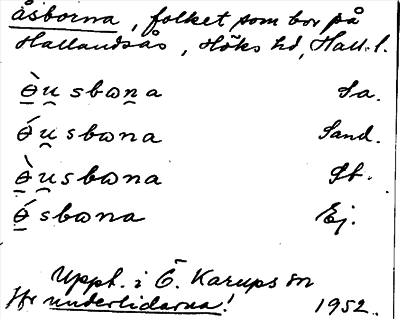 åsborna, folket som bor på
Hallandsås, Höks hd, Hall. l.
ɵ̀u̯sbωna Sa.
ɵ́u̯sbωna Sand.
ɵ̀u̯sbωna Gb.
ɵ́sbωna Ej.
Uppt. i Ö. Karups sn
Jfr underlidarna! 1952.